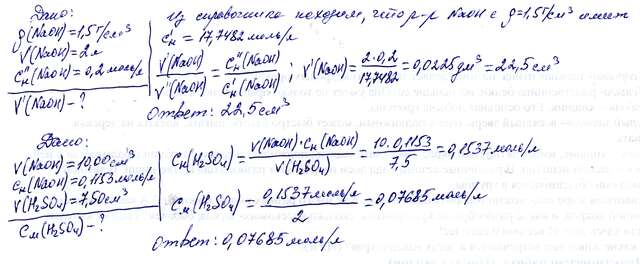 Дано:
ρ(NaOH)=1,5 г/см³
V(NaOH)=2л
C"н(NaOH)=0,2 моль/л
V'(NaOH) - ?
Из справочника находим, что р-р NaOH с ρ=1,5 г/см³ имеет
C'н=17,7482 моль/л
V(NaOH)/V'(NaOH) = C"н(NaOH)/C'н(NaOH) ; V'(NaOH)= 2·0,2/17,7482 =0,0225дм³=22,5см³
Ответ: 22,5см³
Дано:
V(NaOH)=10,00см³
Cн(NaOH)=0,1153моль/л
V(H2SO4)=7,50см³
Cм(H2SO4) - ?
Cн(H2SO4)= V(NaOH)·Cн(NaOH)/V(H2SO4) = 10·0,1153/7,5 =0,1537моль/л
Cм(H2SO4)= 0,1537моль/л/2 =0,07685моль/л
Ответ: 0,07685моль/л